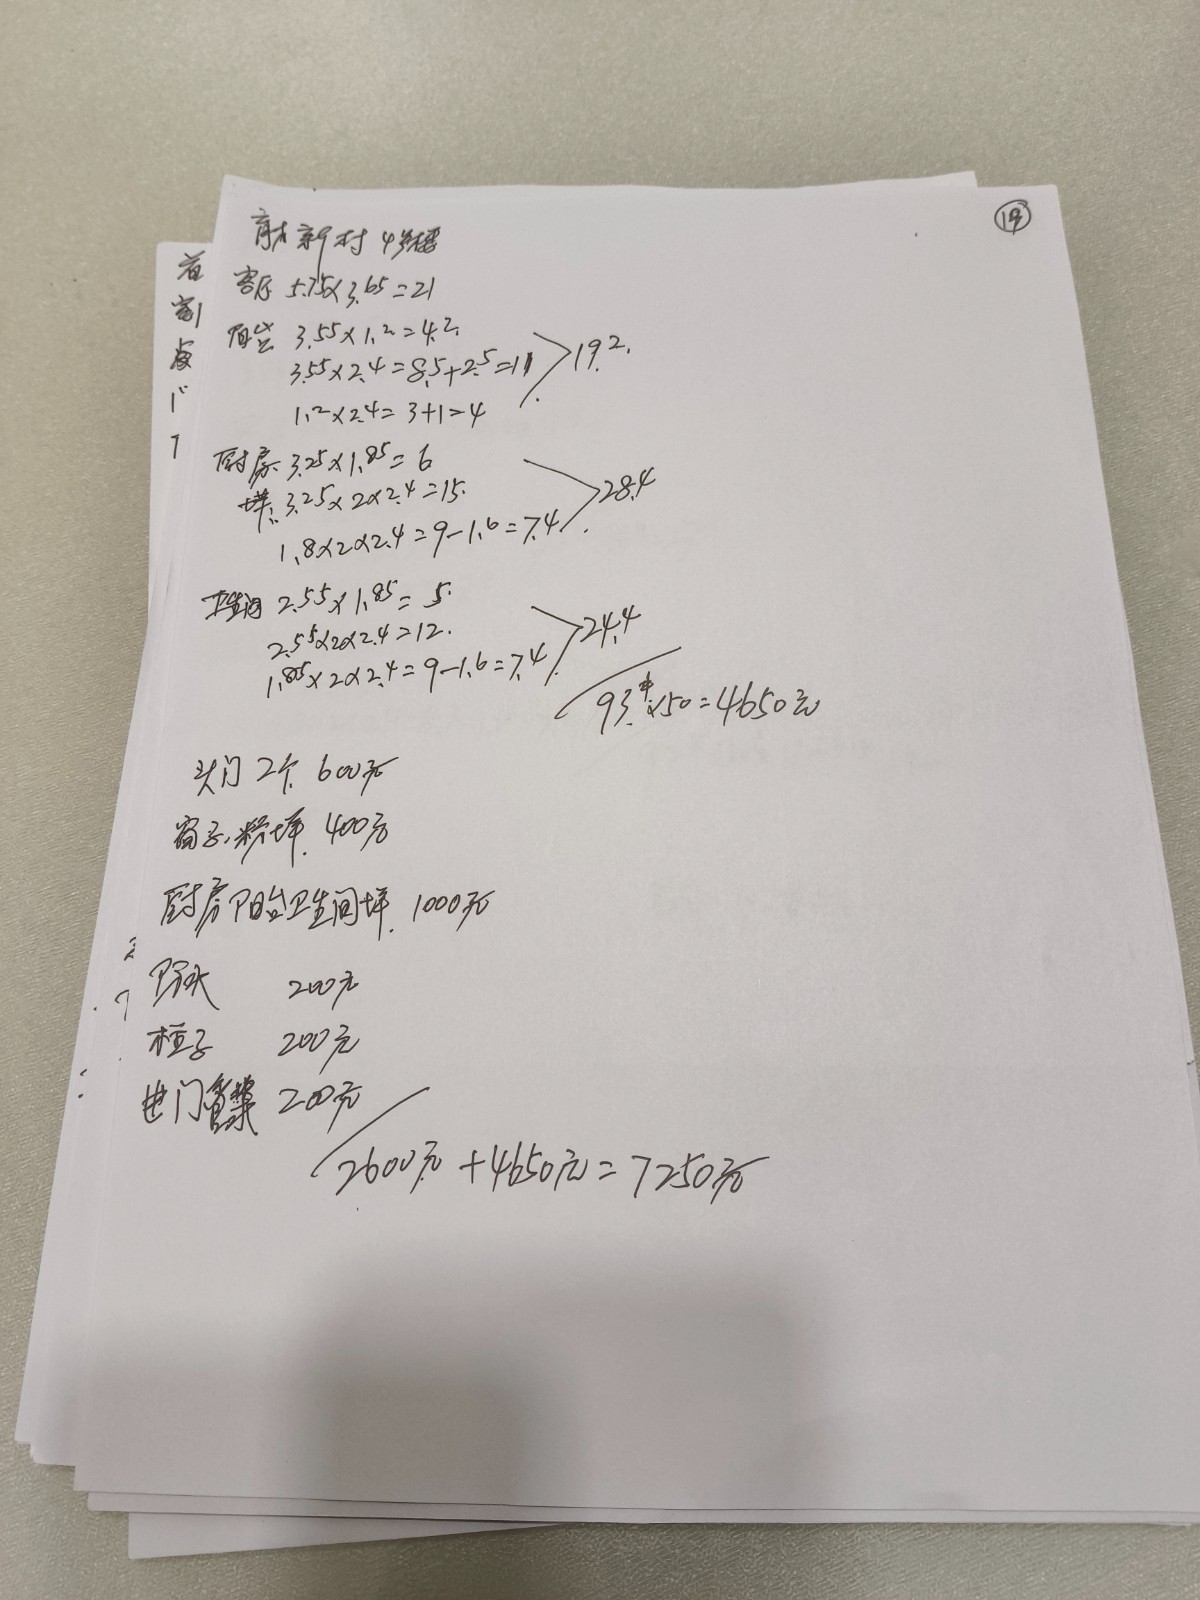 ⑲
育才新村 4号楼
客厅 5.75×3.65=21
阳台 3.55×1.2=4.2
3.55×2.4=8.5+2.5=11 19.2
1.2×2.4=3+1=4
厨房 3.25×1.85=6
3.25×2×2.4=15 28.4
1.8×2×2.4=9-1.6=7.4
卫生间 2.55×1.85=5
2.55×2×2.4=12 24.4
1.85×2×2.4=9-1.6=7.4
93×50=4650元
头门2个 600元
窗子 粉 400元
厨房阳台卫生间 1000元
防水 200元
柜子 200元
进门 200元
2600元+4650元=7250元